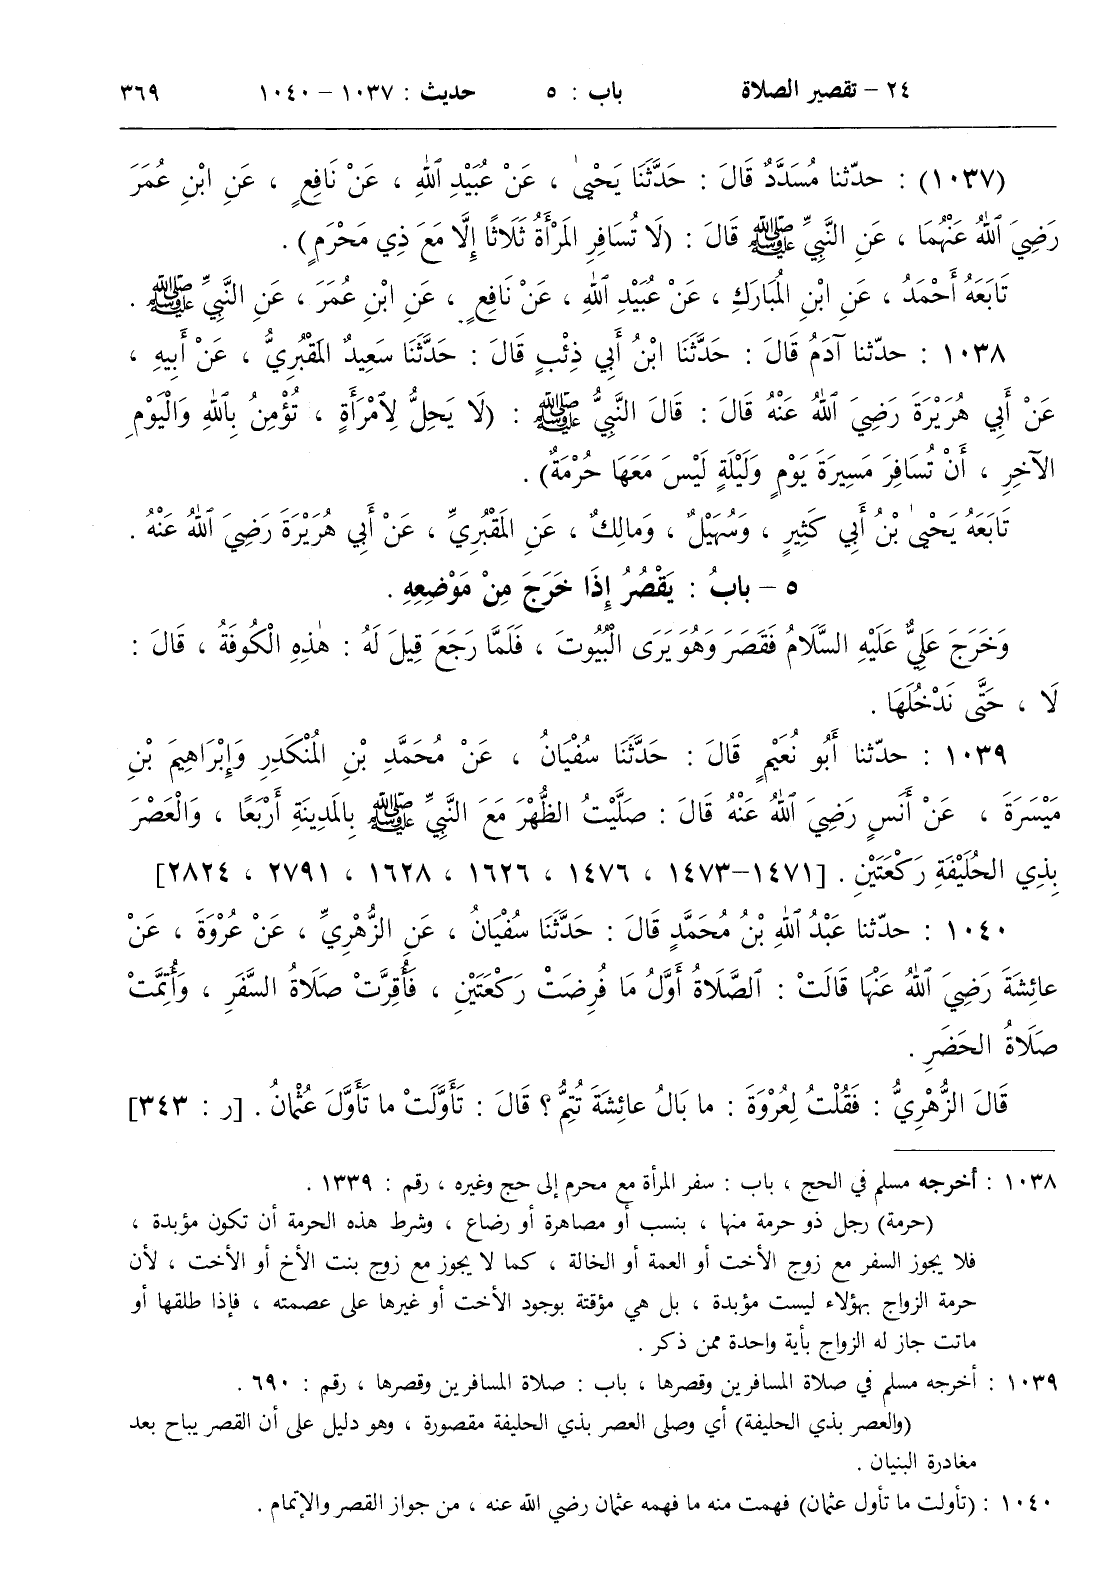 ٢٤ – تقصير الصلاة باب : ٥ حديث : ١٠٣٧ – ١٠٤٠ ٣٦٩
(١٠٣٧) : حدّثنا مُسَدَّدٌ قَالَ : حَدَّثَنَا يَحْيىٰ ، عَنْ عُبَيْدِ ٱللهِ ، عَنْ نَافِعٍ ، عَنِ ابْنِ عُمَرَ
رَضِيَ ٱللهُ عَنْهُمَا ، عَنِ النَّبِيِّ ﷺ قَالَ : (لَا تُسَافِرِ المَرْأَةُ ثَلَاثًا إِلَّا مَعَ ذِي مَحْرَمٍ) .
تَابَعَهُ أَحْمَدُ ، عَنِ ابْنِ المُبَارَكِ ، عَنْ عُبَيْدِ ٱللهِ ، عَنْ نَافِعٍ ، عَنِ ابْنِ عُمَرَ ، عَنِ النَّبِيِّ ﷺ .
١٠٣٨ : حدّثنا آدَمُ قَالَ : حَدَّثَنَا ابْنُ أَبِي ذِئْبٍ قَالَ : حَدَّثَنَا سَعِيدٌ المَقْبُرِيُّ ، عَنْ أَبِيهِ ،
عَنْ أَبِي هُرَيْرَةَ رَضِيَ ٱللهُ عَنْهُ قَالَ : قَالَ النَّبِيُّ ﷺ : (لَا يَحِلُّ لِٱمْرَأَةٍ ، تُؤْمِنُ بِٱللهِ وَالْيَوْمِ
الآخِرِ ، أَنْ تُسَافِرَ مَسِيرَةَ يَوْمٍ وَلَيْلَةٍ لَيْسَ مَعَهَا حُرْمَةٌ) .
تَابَعَهُ يَحْيىٰ بْنُ أَبِي كَثِيرٍ ، وَسُهَيْلٌ ، وَمالِكٌ ، عَنِ المَقْبُرِيِّ ، عَنْ أَبِي هُرَيْرَةَ رَضِيَ ٱللهُ عَنْهُ .
٥ – بابُ : يَقْصُرُ إِذَا خَرَجَ مِنْ مَوْضِعِهِ .
وَخَرَجَ عَلِيٌّ عَلَيْهِ السَّلَامُ فَقَصَرَ وَهُوَ يَرَى الْبُيُوتَ ، فَلَمَّا رَجَعَ قِيلَ لَهُ : هٰذِهِ الْكُوفَةُ ، قَالَ :
لَا ، حَتَّى نَدْخُلَهَا .
١٠٣٩ : حدّثنا أَبُو نُعَيْمٍ قَالَ : حَدَّثَنَا سُفْيَانُ ، عَنْ مُحَمَّدِ بْنِ المُنْكَدِرِ وَإِبْرَاهِيمَ بْنِ
مَيْسَرَةَ ، عَنْ أَنَسٍ رَضِيَ ٱللهُ عَنْهُ قَالَ : صَلَّيْتُ الظُّهْرَ مَعَ النَّبِيِّ ﷺ بِالمَدِينَةِ أَرْبَعًا ، وَالْعَصْرَ
بِذِي الحُلَيْفَةِ رَكْعَتَيْنِ . [١٤٧١–١٤٧٣ ، ١٤٧٦ ، ١٦٢٦ ، ١٦٢٨ ، ٢٧٩١ ، ٢٨٢٤]
١٠٤٠ : حدّثنا عَبْدُ ٱللهِ بْنُ مُحَمَّدٍ قَالَ : حَدَّثَنَا سُفْيَانُ ، عَنِ الزُّهْرِيِّ ، عَنْ عُرْوَةَ ، عَنْ
عائِشَةَ رَضِيَ ٱللهُ عَنْهَا قَالَتْ : ٱلصَّلَاةُ أَوَّلُ مَا فُرِضَتْ رَكْعَتَيْنِ ، فَأُقِرَّتْ صَلَاةُ السَّفَرِ ، وَأُتِمَّتْ
صَلَاةُ الحَضَرِ .
قَالَ الزُّهْرِيُّ : فَقُلْتُ لِعُرْوَةَ : ما بَالُ عائِشَةَ تُتِمُّ ؟ قَالَ : تَأَوَّلَتْ ما تَأَوَّلَ عُثْمانُ . [ر : ٣٤٣]
١٠٣٨ : أخرجه مسلم في الحج ، باب : سفر المرأة مع محرم إلى حج وغيره ، رقم : ١٣٣٩ .
(حرمة) رجل ذو حرمة منها ، بنسب أو مصاهرة أو رضاع ، وشرط هذه الحرمة أن تكون مؤبدة ،
فلا يجوز السفر مع زوج الأخت أو العمة أو الخالة ، كما لا يجوز مع زوج بنت الأخ أو الأخت ، لأن
حرمة الزواج بهؤلاء ليست مؤبدة ، بل هي مؤقتة بوجود الأخت أو غيرها على عصمته ، فإذا طلقها أو
ماتت جاز له الزواج بأية واحدة ممن ذكر .
١٠٣٩ : أخرجه مسلم في صلاة المسافرين وقصرها ، باب : صلاة المسافرين وقصرها ، رقم : ٦٩٠ .
(والعصر بذي الحليفة) أي وصلى العصر بذي الحليفة مقصورة ، وهو دليل على أن القصر يباح بعد
مغادرة البنيان .
١٠٤٠ : (تأولت ما تأول عثمان) فهمت منه ما فهمه عثمان رضي الله عنه ، من جواز القصر والإتمام .